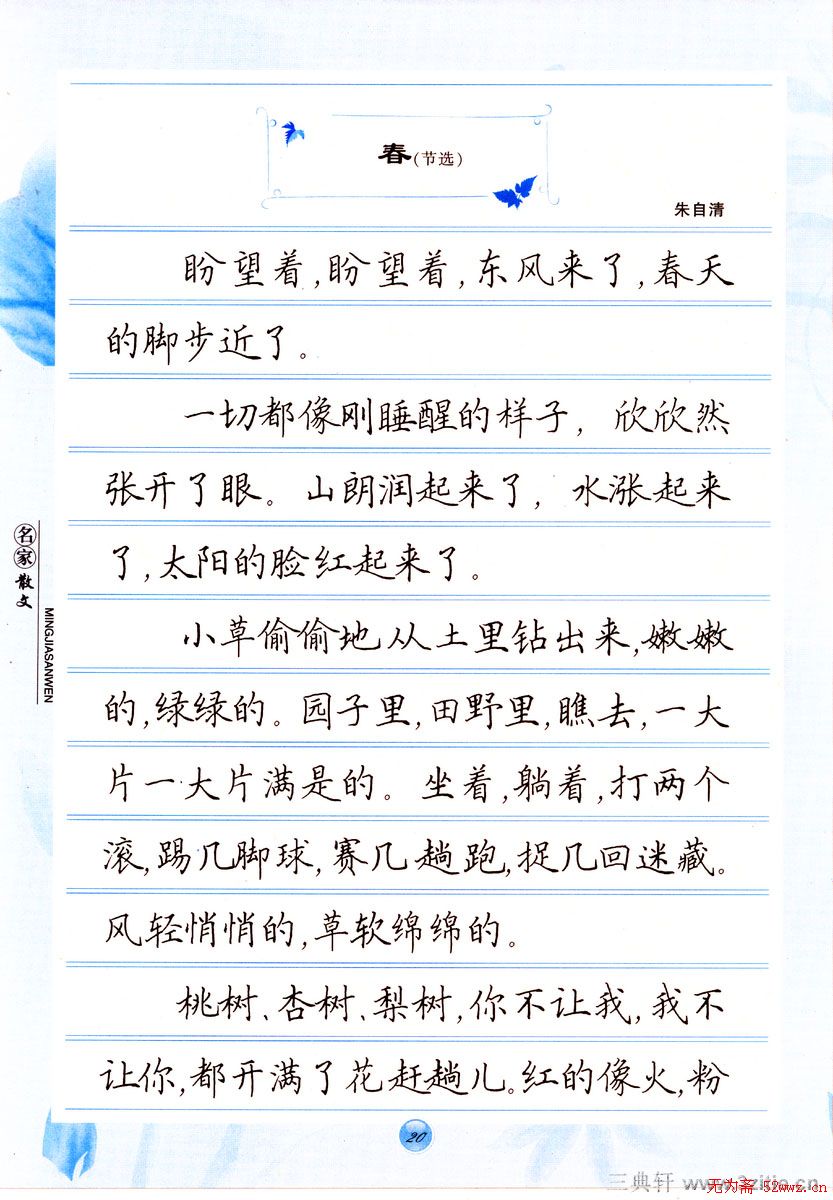 春(节选)
朱自清
盼望着,盼望着,东风来了,春天
的脚步近了。
一切都像刚睡醒的样子，欣欣然
张开了眼。山朗润起来了，水涨起来
了,太阳的脸红起来了。
小草偷偷地从土里钻出来,嫩嫩
的,绿绿的。园子里,田野里,瞧去,一大
片一大片满是的。坐着,躺着,打两个
滚,踢几脚球,赛几趟跑,捉几回迷藏。
风轻悄悄的,草软绵绵的。
桃树、杏树、梨树,你不让我,我不
让你,都开满了花赶趟儿。红的像火,粉
名家散文
MINGJIASANWEN
20
三典轩
无为斋 52wwz.cn